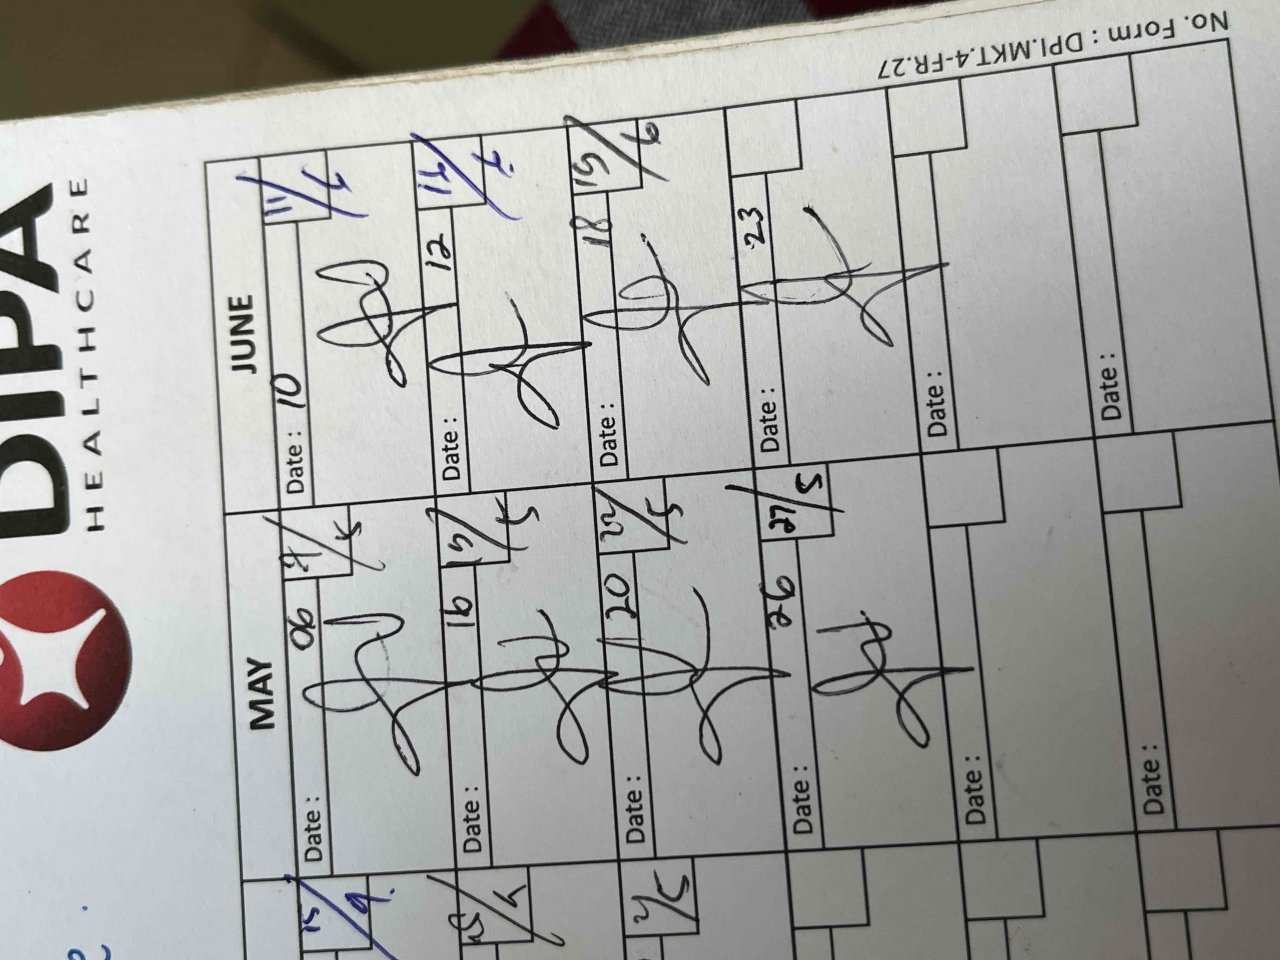 DIPA
HEALTHCARE
MAY
JUNE
Date : 06
7/5
Date : 10
11/6
Date : 16
19/5
Date : 12
Date : 20
22/5
Date : 18
19/6
Date : 26
27/5
Date : 23
Date :
Date :
Date :
Date :
2/5
No. Form : DPI.MKT.4-FR.27